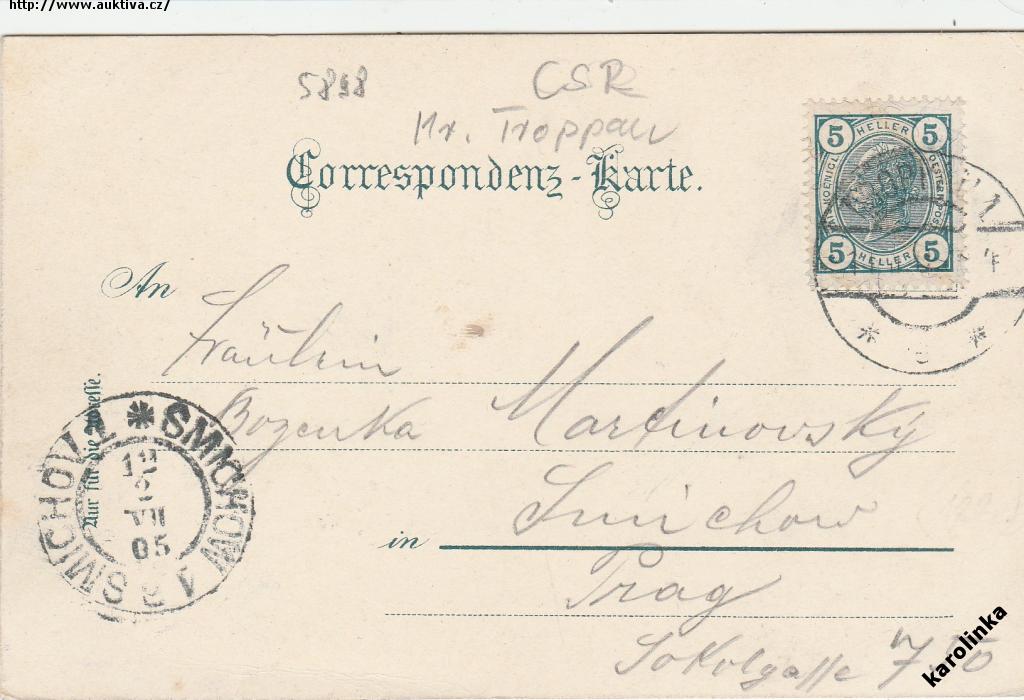 http://www.auktiva.cz/
5898 CSR
Kr. Troppau
Correspondenz-Karte.
5 HELLER 5
5 HELLER 5
An
Fräulein
Bozenka Martinovský
Smichow
in
Prag
Sokolgasse
Nur für die Adresse.
SMICHOW 1 SMICHOV 1
12
VII
05
karolinka